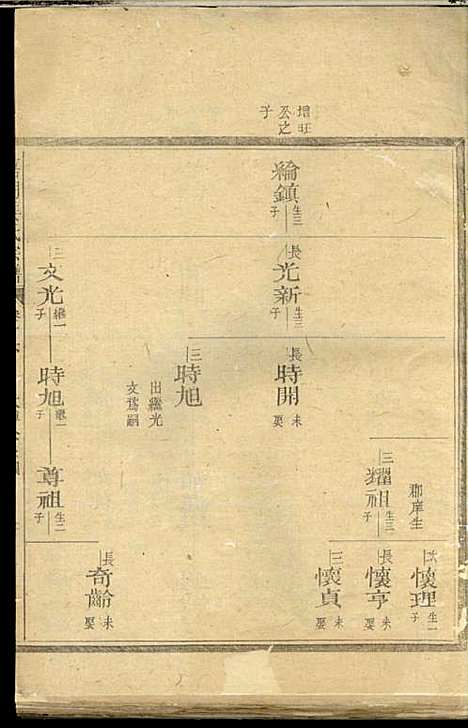 增旺
公之
子
綸鎮
生三
子
長
光新
生三
子
三
文光
繼一
子
長
時開
未
娶
三
時旭
出繼光
文爲嗣
時旭
繼一
子
三
耀祖
生三
子
郡庠生
尊祖
生二
子
次
懷理
生一
子
長
懷亨
未
娶
三
懷貞
未
娶
長
奇齡
未
娶